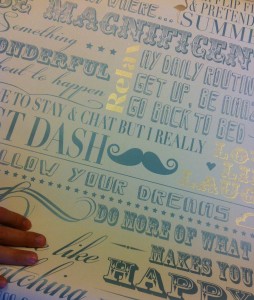 & PRETEND
SUMMER
BE MAGNIFICENT
Something
WONDERFUL
about to happen
Relax
MY DAILY ROUTINE
GET UP, BE
GO BACK TO BED
TO STAY & CHAT BUT I REALLY
ST DASH
LIVE
LAUGH
FOLLOW YOUR DREAMS
DO MORE OF WHAT
like
MAKES YOU
HAPPY